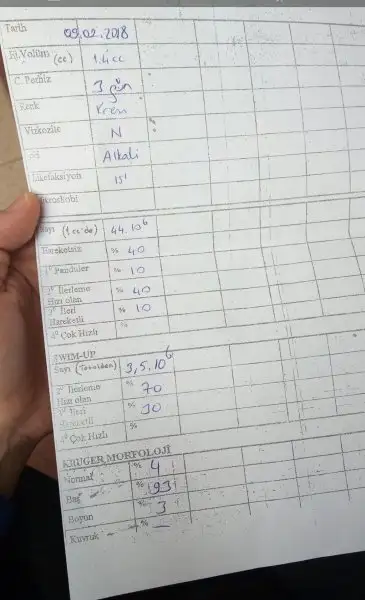 Tarih 09.02.2018
Ej.Volüm (cc) 1.4cc
C. Perhiz 3 gün
Renk Krem
Vizkozite N
pH Alkali
Likefaksiyon 15'
Mikroskobi
Sayı (1 cc'de) 44.10⁶
Hareketsiz % 40
1⁰ Pandüler % 10
2⁰ İlerleme % 40
Hızı olan
3⁰ İleri % 10
Hareketli
4⁰ Çok Hızlı %
SWIM-UP
Sayı (Total) 3,5.10⁶
2⁰ İlerleme % 70
Hızı olan
3⁰ İleri % 30
Hareketli
4⁰ Çok Hızlı %
KRUGER MORFOLOJİ
Normal % 4
Baş % 93
Boyun % 3
Kuyruk % —